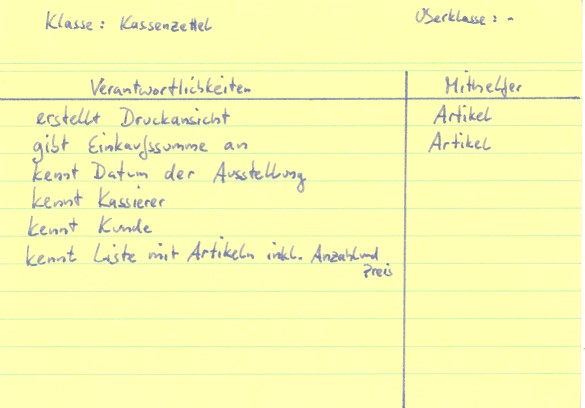 Klasse: Kassenzettel
Oberklasse: -
Verantwortlichkeiten
Mithelfer
erstellt Druckansicht
Artikel
gibt Einkaufssumme an
Artikel
kennt Datum der Ausstellung
kennt Kassierer
kennt Kunde
kennt Liste mit Artikeln inkl. Anzahl und
Preis